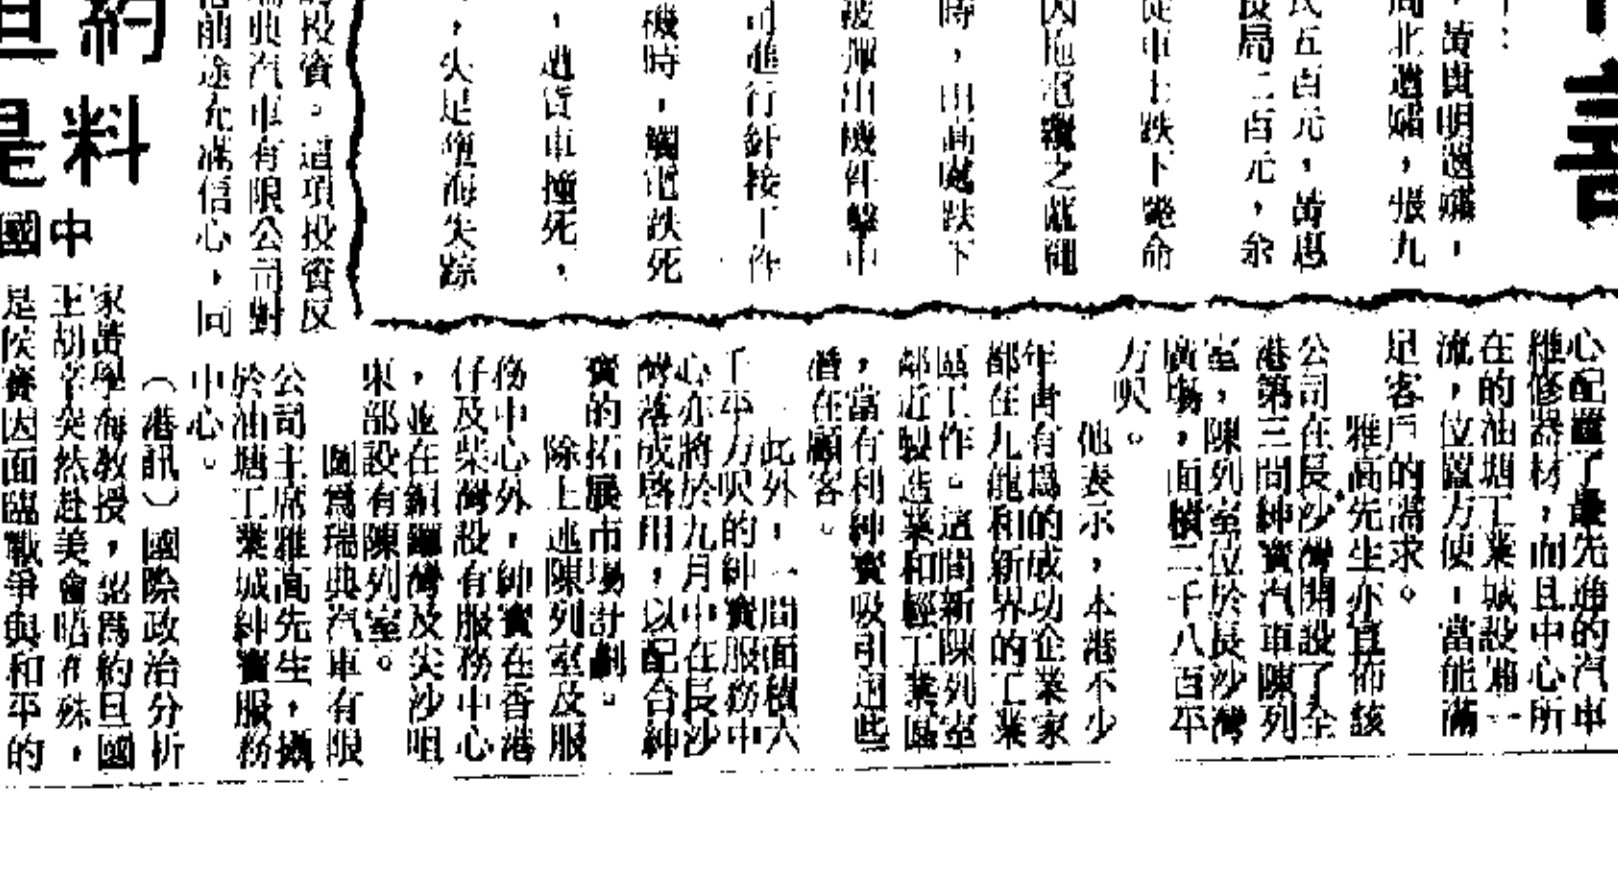 ，黃樹明遺孀，
周北遺孀，張九
民五百元，黃惠
長局二百元，余
從車上跌下斃命
因拖電纜之纜繩
時，由高處跌下
被彈出機件擊中
司進行銲接工作
機時，觸電跌死
，遇貨車撞死，
，失足墮海失踪
的投資。這項投資反
瑞典汽車有限公司對
前途充滿信心，同
心配置了最先進的汽車
維修器材，而且中心所
在的油塘工業城設備一
流，位置方便，當能滿
足客戶的需求。
雅高先生亦宣佈該
公司在長沙灣開設了全
港第三間紳寶汽車陳列
室，陳列室位於長沙灣
廣場，面積二千八百平
方呎。
他表示，本港不少
年青有為的成功企業家
都在九龍和新界的工業
區工作。這間新陳列室
鄰近製造業和輕工業區
，當有利紳寶吸引這些
潛在顧客。
此外，一間面積六
千平方呎的紳寶服務中
心亦將於九月中在長沙
灣落成啓用，以配合紳
寶的拓展市場計劃。
除上述陳列室及服
務中心外，紳寶在香港
仔及柴灣設有服務中心
，並在銅鑼灣及尖沙咀
東部設有陳列室。
圖為瑞典汽車有限
公司主席雅高先生，攝
於油塘工業城紳寶服務
中心。
約料
旦是
中國
（港訊）國際政治分析
家黃學海教授，認為約旦國
王胡辛突然赴美會晤布殊，
是侯賽因面臨戰爭與和平的